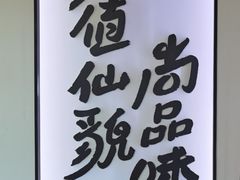 值仙貌
尚品味